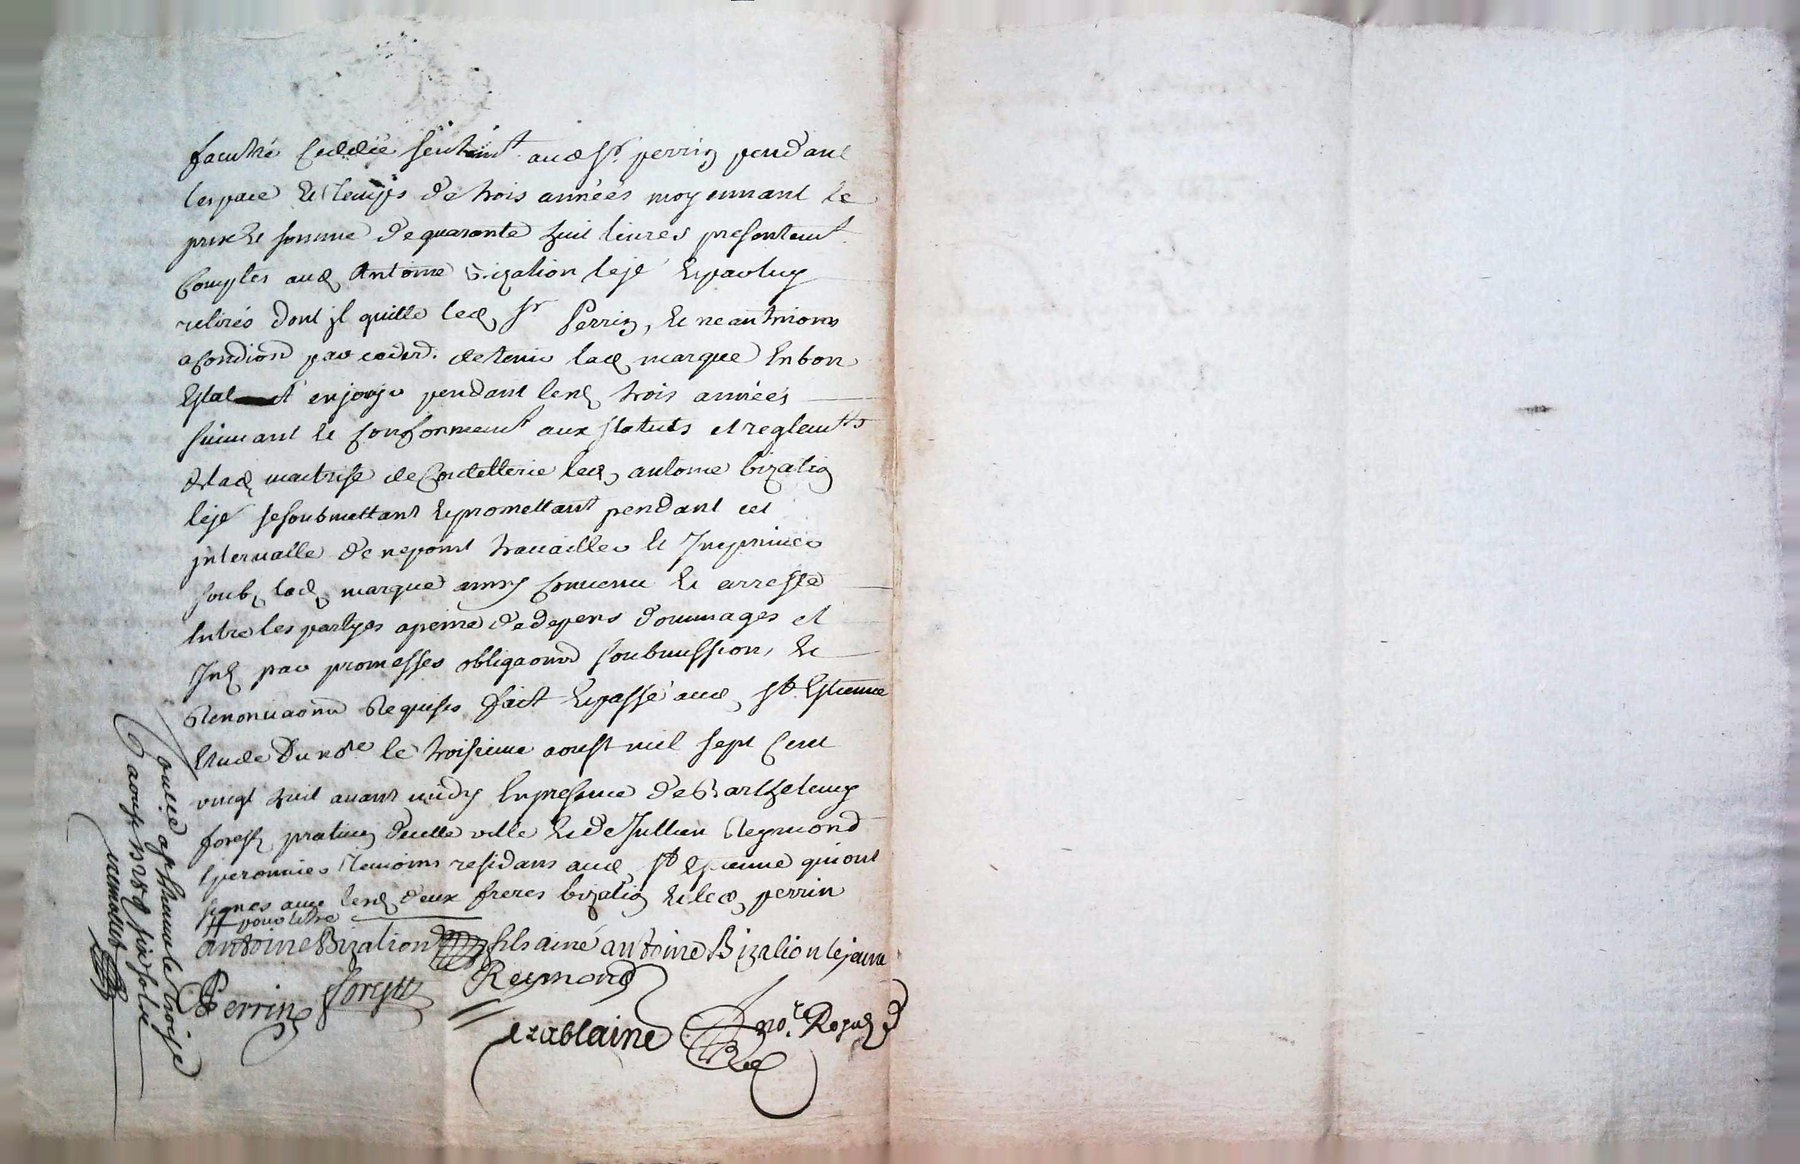 faculté ceddée seulement aud Sr. perrin pendant
lespace et temps de trois années moyennant le
prix et somme de quarante huit livres presentemt.
comptés aud Antoine Bizalion le je et par luy
retirés dont jl quitte led Sr Perrin, et neantmoins
a condion par coderd. de tenir lad marque en bon
estat et en jouyr pendant lesd trois années
suivant et conformemt aux statuts et reglemts
de lad maitrise de Coutellerie led antoine bizalion
le je se soubmettant et promettant pendant cet
jntervalle de ne point travailler et Imprimer
soub lad marque ainsy convenu et arresté
Entre les partyes a peine de depens dommages et
Ind par promesses obligaons soubmission, et
Renonciaons Requises fait et passé aud St. Estienne
Etude du nore le troisieme aoust mil sept Cent
vingt huit avant midy En presence de Barthelemy
forest praticien de cette ville et de Jullien Reymond
Eperonnier temoins residans aud St Estienne qui ont
signés avec lesd deux freres bizalion et led perrin
antoine Bizalion fils ainé antoine Bizalion le jeune
Perrin forest Reymond
no.re Royal
aoust 1728